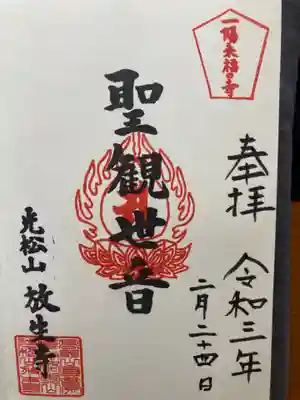 一陽来福の寺
奉拝
令和三年
二月二十四日
聖観世音
光松山
放生寺